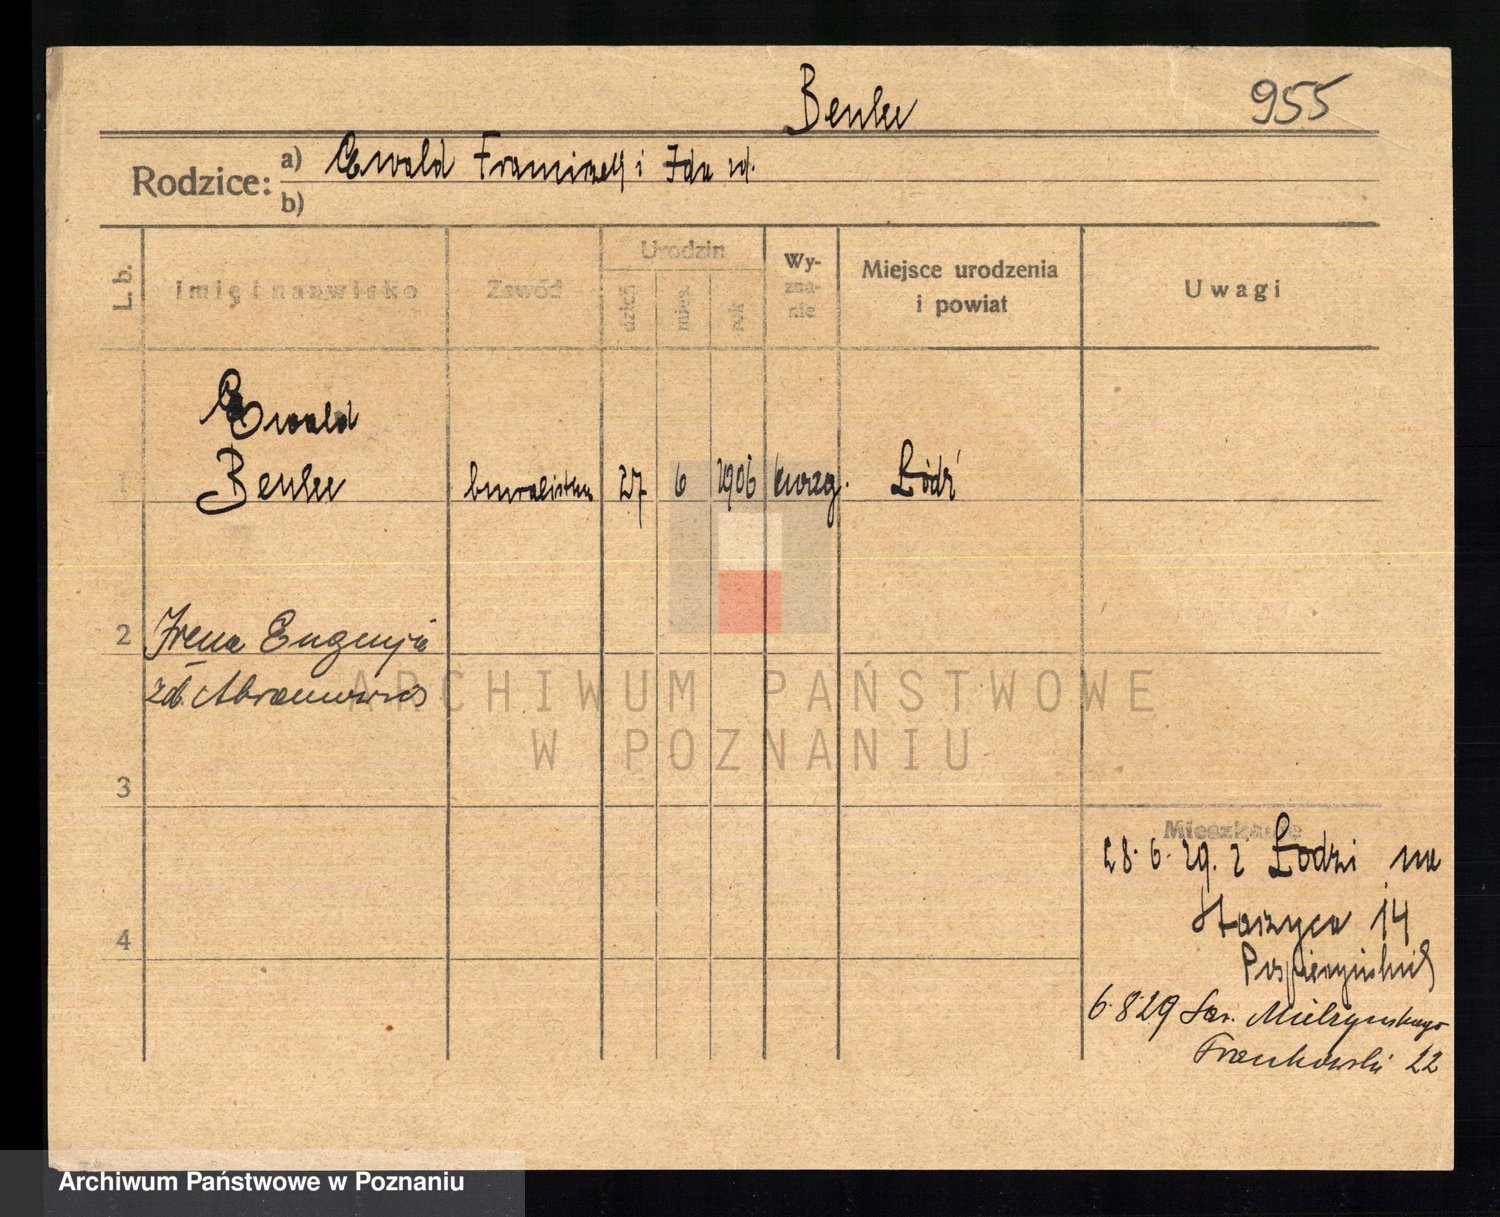 955
Benke
Rodzice: a) Ewald Franciszek i Ida rd.
b)
L. b.
Imię i nazwisko
Zawód
Urodzin
dzień
mies.
rok
Wyznanie
Miejsce urodzenia
i powiat
Uwagi
Ewald
1 Benke biuralista 27 6 1906 ewang. Łódź
2 Irena Eugenja
zd. Abramowicz
3
Mieszkanie
28. 6. 29. z Łodzi na
4
14
6.8.29 Sew. Mielżyńskiego
Frankowski 22
ARCHIWUM PAŃSTWOWE
W POZNANIU
Archiwum Państwowe w Poznaniu